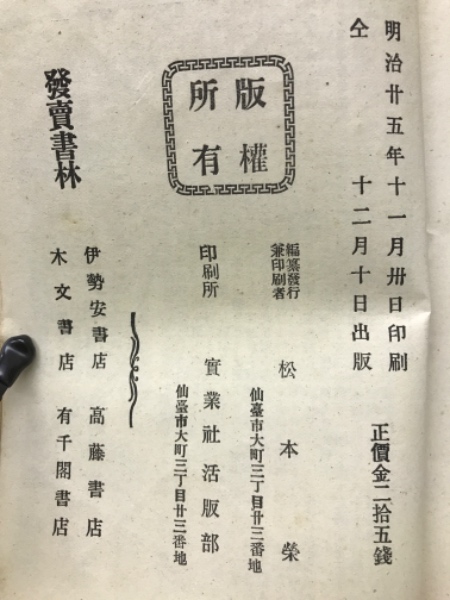 明治廿五年十一月卅日印刷
仝 十二月十日出版
正價金二拾五錢
版權
所有
編纂發行
兼印刷者
松本榮
仙臺市大町三丁目廿三番地
印刷所
實業社活版部
仙臺市大町三丁目廿三番地
發賣書林
伊勢安書店 高藤書店
木文書店 有千閣書店